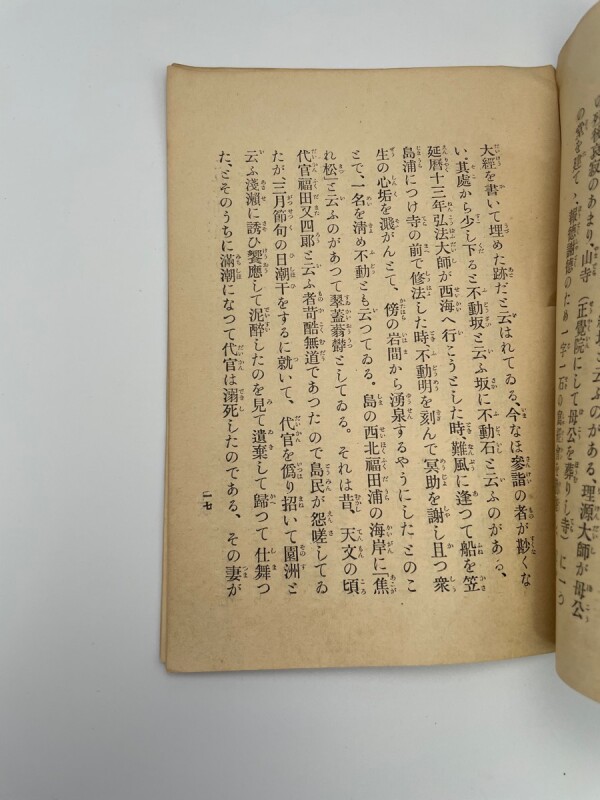 良寂のあまり、山寺（正覺院にして母公を葬りし寺）に一つ
の堂を建て、報恩謝德のため一字一石の
大經を書いて埋めた跡だと云はれてゐる、今なほ參詣の者が尠くな
い、其處から少し下ると不動坂と云ふ坂に不動石と云ふのがある、
延曆十三年弘法大師が西海へ行こうとした時、難風に逢つて船を笠
島浦につけ寺の前で修法した時、不動明を刻んで冥助を謝し且つ衆
生の心垢を濺がんとて、傍の岩間から湧泉するやうにしたとのこ
とで、一名を淸め不動とも云つてゐる。島の西北福田浦の海岸に「焦
れ松」と云ふのがあつて翠蓋蓊鬱としてゐる。それは昔、天文の頃
代官福田又四郞と云ふ者苛酷無道であつたので島民が怨嗟してゐ
たが、三月節句の日潮干をするに就いて、代官を僞り招いて園洲と
云ふ淺瀨に誘ひ饗應して泥醉したのを見て遺棄して歸つて仕舞つ
た、とそのうちに滿潮になつて代官は溺死したのである、その妻が
一七